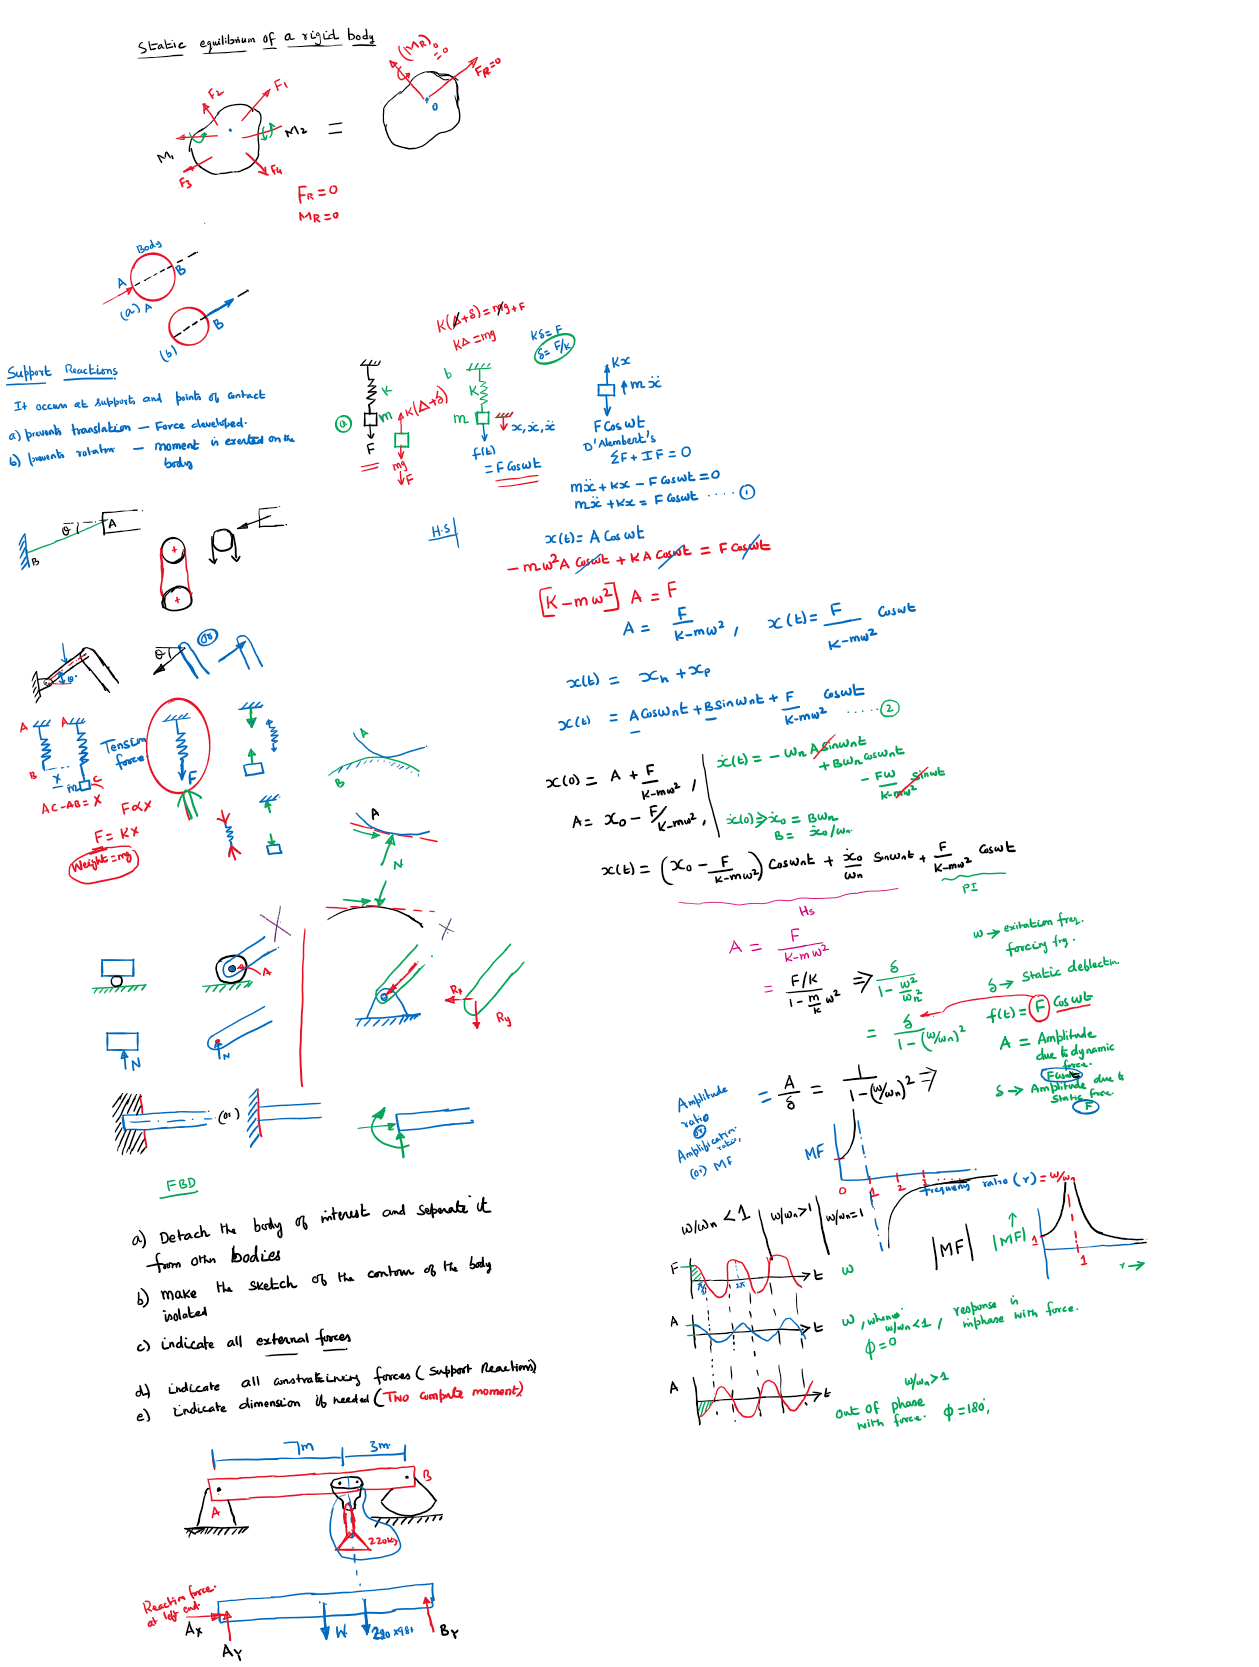 Static equilibrium of a rigid body
(MR)o = 0
FR=0
o
F2
F1
M2
=
M1
F3
F4
FR = 0
MR = 0
Body
A
B
(a) A
B
(b)
Support Reactions
It occurs at supports and points of contact
a) prevents translation – Force developed.
b) prevents rotation – moment is exerted on the
body
θ
A
B
+
+
θ
(or)
A
A
B
x
m
C
Tension
force
F
AC-AB = x
F∝x
F = Kx
Weight = mg
A
B
A
N
A
N
Rx
Ry
(or)
FBD
a) Detach the body of interest and seperate it
from othr bodies
b) make the sketch of the contour of the body
isolated
c) indicate all external forces
d) indicate all constraining forces (Support Reactions)
e) indicate dimension if needed (Two compute moment)
7m
3m
A
B
220kg
Reaction force
at left end.
Ax
Ay
W
220 x981
By
K(Δ+δ) = mg+F
KΔ = mg
Kδ = F
δ = F/k
a
K
m
F
K(Δ+δ)
mg
F
b
K
m
x, ẋ, ẍ
f(t)
= F Cos wt
Kx
mẍ
F Cos wt
D'Alembert's
ΣF + IF = 0
mẍ + Kx – F Coswt = 0
mẍ + Kx = F Coswt ..... 1
H.S
x(t) = A Cos wt
- mw²A Coswt + KA Coswt = F Coswt
[K – mw²] A = F
A = F / K-mw² , x(t) = F / K-mw² Coswt
x(t) = xh + xp
x(t) = A Cos wnt + B Sin wnt + F / K-mw² Coswt ..... 2
x(0) = A + F / K-mw² ,
A = x0 – F / K-mw² ,
ẋ(t) = - wn A Sinwnt
+ Bwn Coswnt
- Fw / K-mw² Sinwt
ẋ(0) ⇒ ẋ0 = Bwn
B = ẋ0/wn
x(t) = (x0 – F / K-mw²) Coswnt + ẋ0 / wn Sinwnt + F / K-mw² Coswt
Hs
PI
A = F / K-mw²
= F/K / 1 – m/k w² ⇒ δ / 1 – w²/wn²
= δ / 1 – (w/wn)²
w → exitation freq.
forcing frq.
δ → Static deflectin
f(t) = F Coswt
A = Amplitude
due to dynamic
force.
Fcoswt
δ → Amplitude due to
static force
F
Amplitude
ratio
or
Amplification
ratio,
(or) MF
= A / δ = 1 / 1 – (w/wn)² ⇒
MF
0
1
2
3 ....
frequency ratio (r) = w/wn
w/wn < 1
w/wn > 1
w/wn = 1
|MF|
|MF|
1
1
r →
F
t
w
A
t
w, when
w/wn < 1, response is
inphase with force.
ϕ = 0
A
t
w/wn > 1
Out of phase
with force. ϕ = 180°,